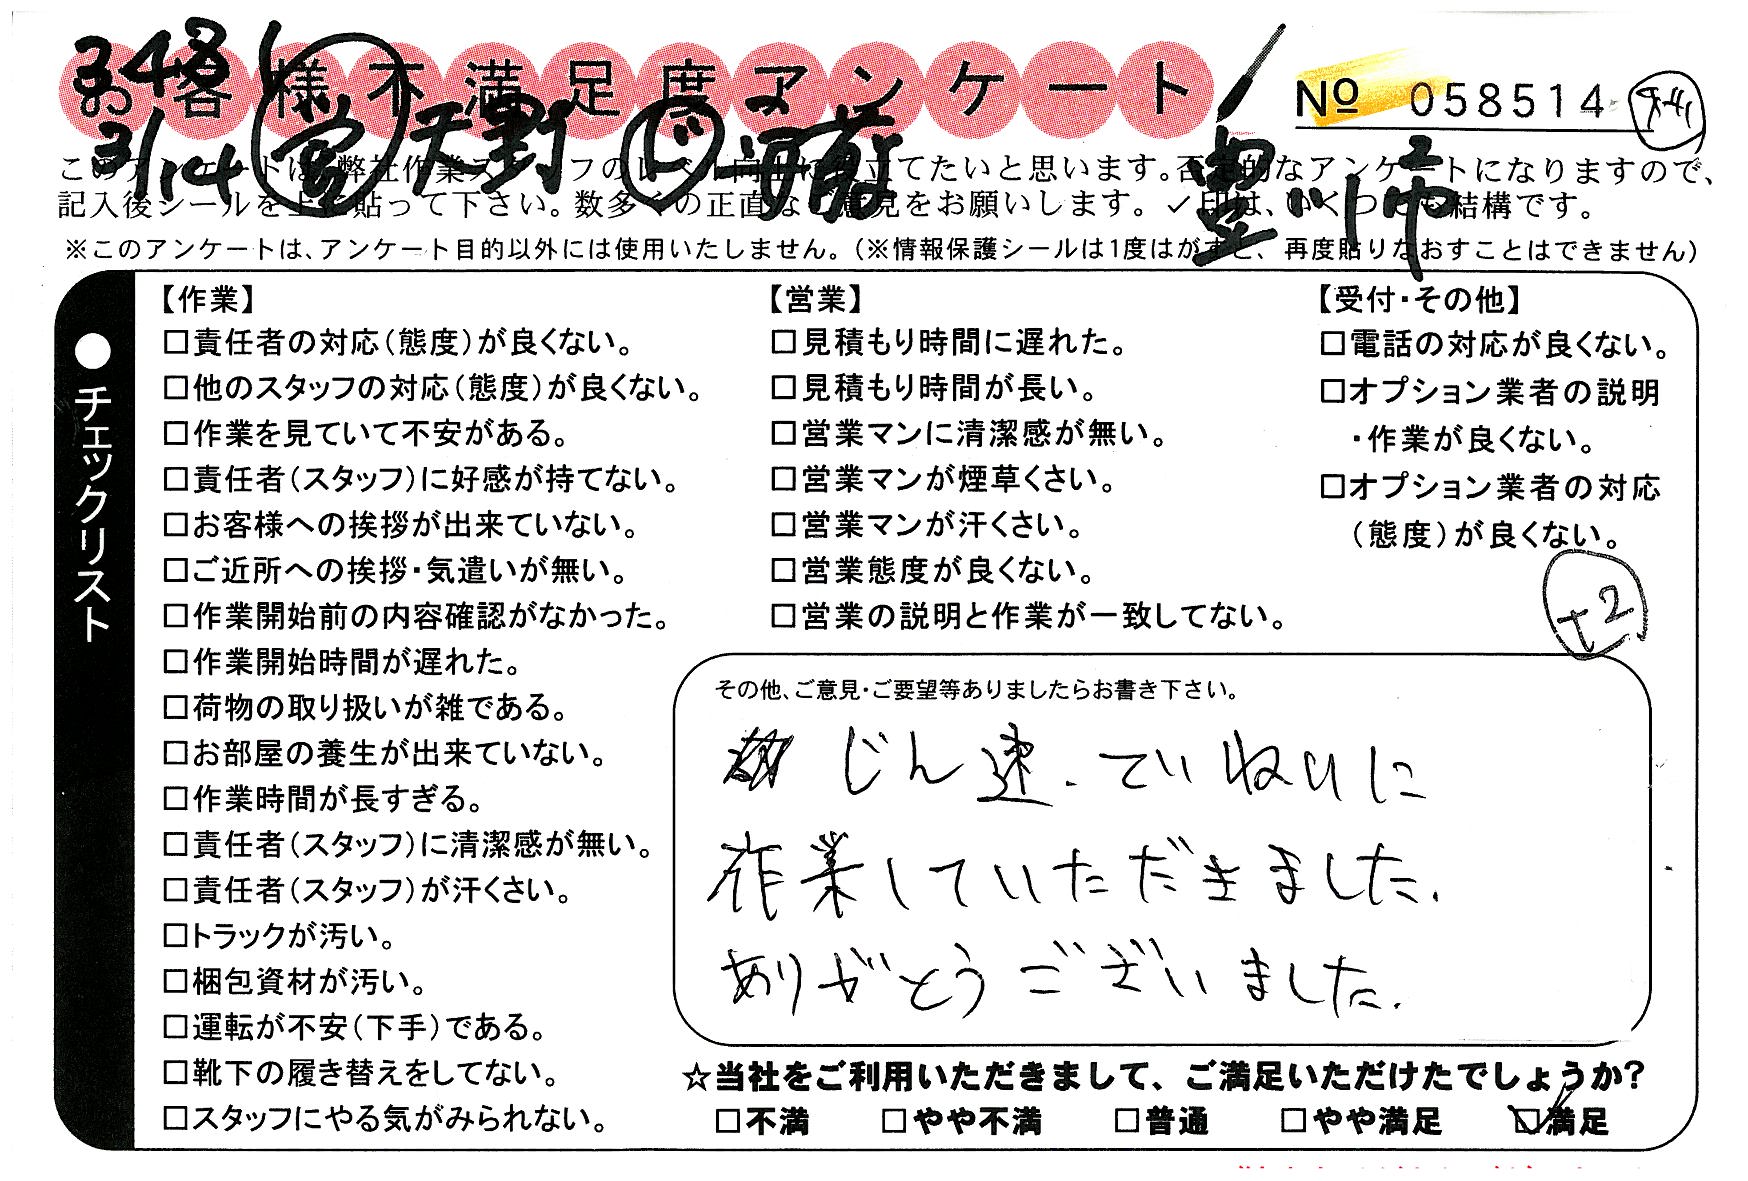 お客様不満足度アンケート
№ 058514
348
3/14 営 天野 ビ
豊川市
このアンケートは、弊社作業スタッフのレベル向上に役立てたいと思います。否定的なアンケートになりますので、
記入後シールを上に貼って下さい。数多くの正直なご意見をお願いします。✓印は、いくつでも結構です。
※このアンケートは、アンケート目的以外には使用いたしません。（※情報保護シールは1度はがすと、再度貼りなおすことはできません）
●チェックリスト
【作業】
□責任者の対応（態度）が良くない。
□他のスタッフの対応（態度）が良くない。
□作業を見ていて不安がある。
□責任者（スタッフ）に好感が持てない。
□お客様への挨拶が出来ていない。
□ご近所への挨拶・気遣いが無い。
□作業開始前の内容確認がなかった。
□作業開始時間が遅れた。
□荷物の取り扱いが雑である。
□お部屋の養生が出来ていない。
□作業時間が長すぎる。
□責任者（スタッフ）に清潔感が無い。
□責任者（スタッフ）が汗くさい。
□トラックが汚い。
□梱包資材が汚い。
□運転が不安（下手）である。
□靴下の履き替えをしてない。
□スタッフにやる気がみられない。
【営業】
□見積もり時間に遅れた。
□見積もり時間が長い。
□営業マンに清潔感が無い。
□営業マンが煙草くさい。
□営業マンが汗くさい。
□営業態度が良くない。
□営業の説明と作業が一致してない。
【受付・その他】
□電話の対応が良くない。
□オプション業者の説明
・作業が良くない。
□オプション業者の対応
（態度）が良くない。
t2
その他、ご意見・ご要望等ありましたらお書き下さい。
じん速、ていねいに
作業していただきました。
ありがとうございました。
☆当社をご利用いただきまして、ご満足いただけたでしょうか?
□不満 □やや不満 □普通 □やや満足 ☑満足